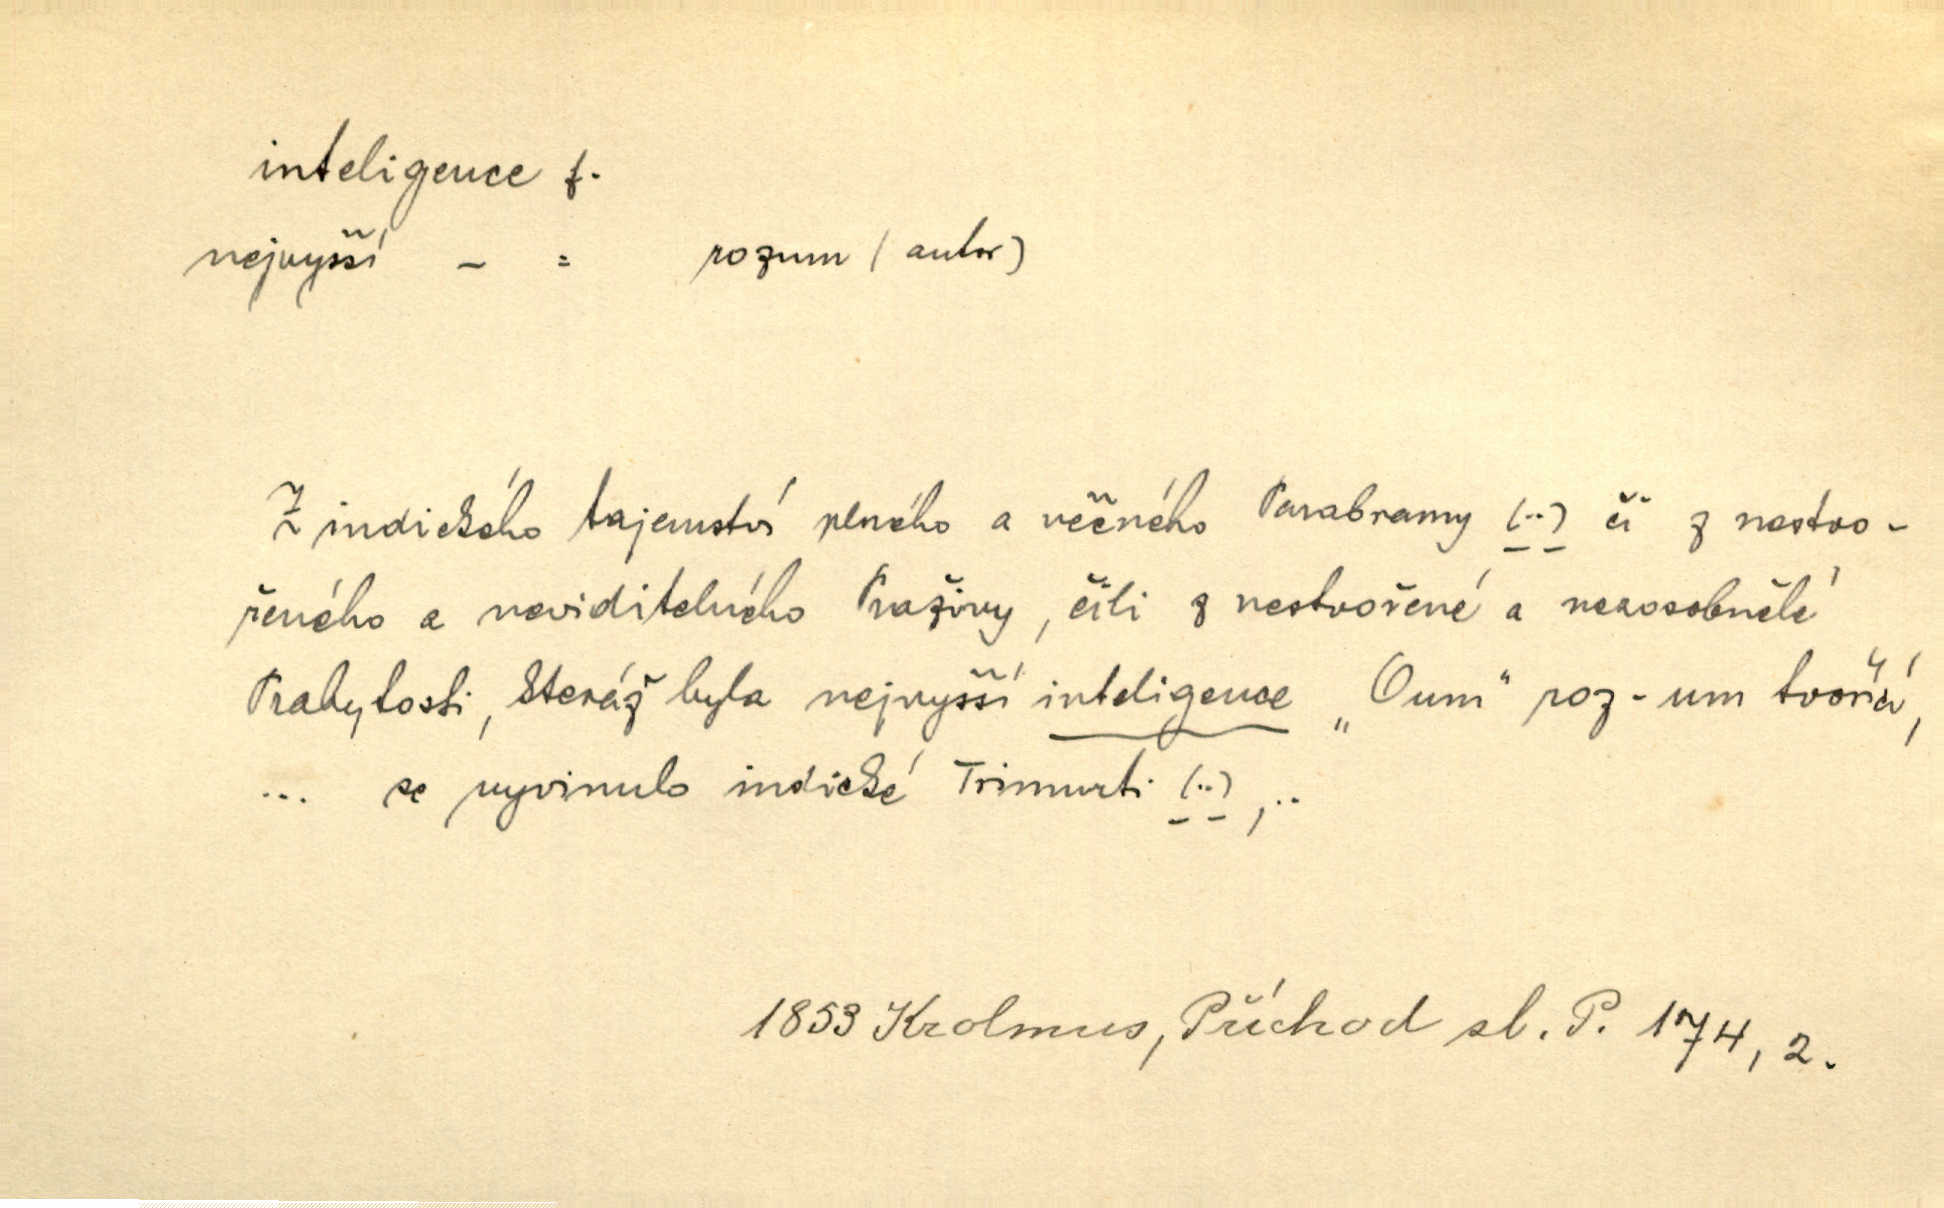 inteligence f.
nejvyšší – = rozum (autor)
Z indického tajemství plného a věčného Parabramy (..) či z nestvo-
řeného a neviditelného Praživy, čili z nestvořené a nezosobnělé
Prabytosti, kteráž byla nejvyšší inteligence „Oum“ roz-um tvořící,
... se vyvinulo indické Trimurti (..), ..
1853 Krolmus, Příchod sl. P. 174, 2.